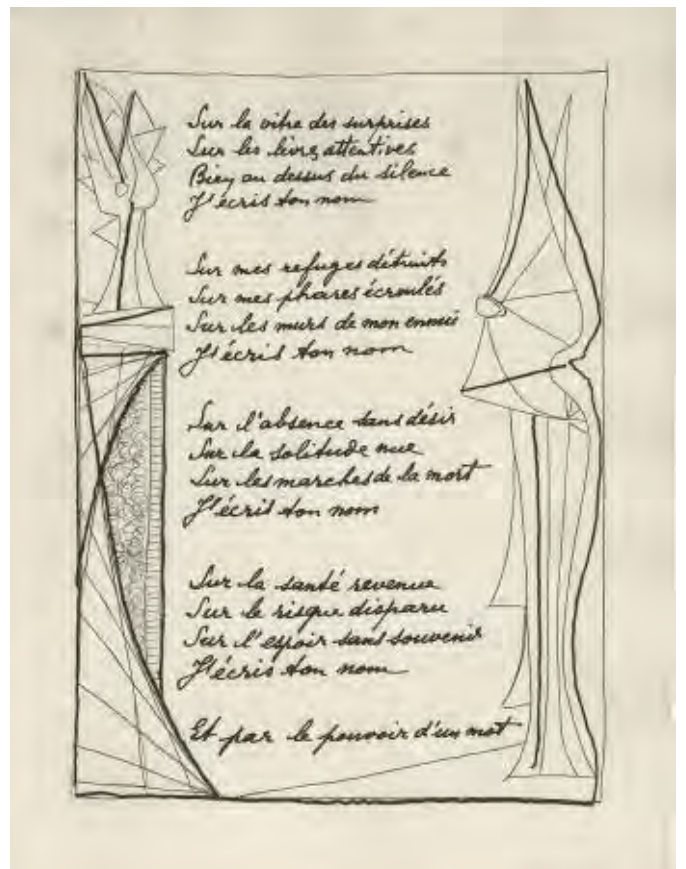 Sur la vitre des surprises
Sur les lèvres attentives
Bien au dessus du silence
J'écris ton nom
Sur mes refuges détruits
Sur mes phares écroulés
Sur les murs de mon ennui
J'écris ton nom
Sur l'absence sans désir
Sur la solitude nue
Sur les marches de la mort
J'écris ton nom
Sur la santé revenue
Sur le risque disparu
Sur l'espoir sans souvenir
J'écris ton nom
Et par le pouvoir d'un mot